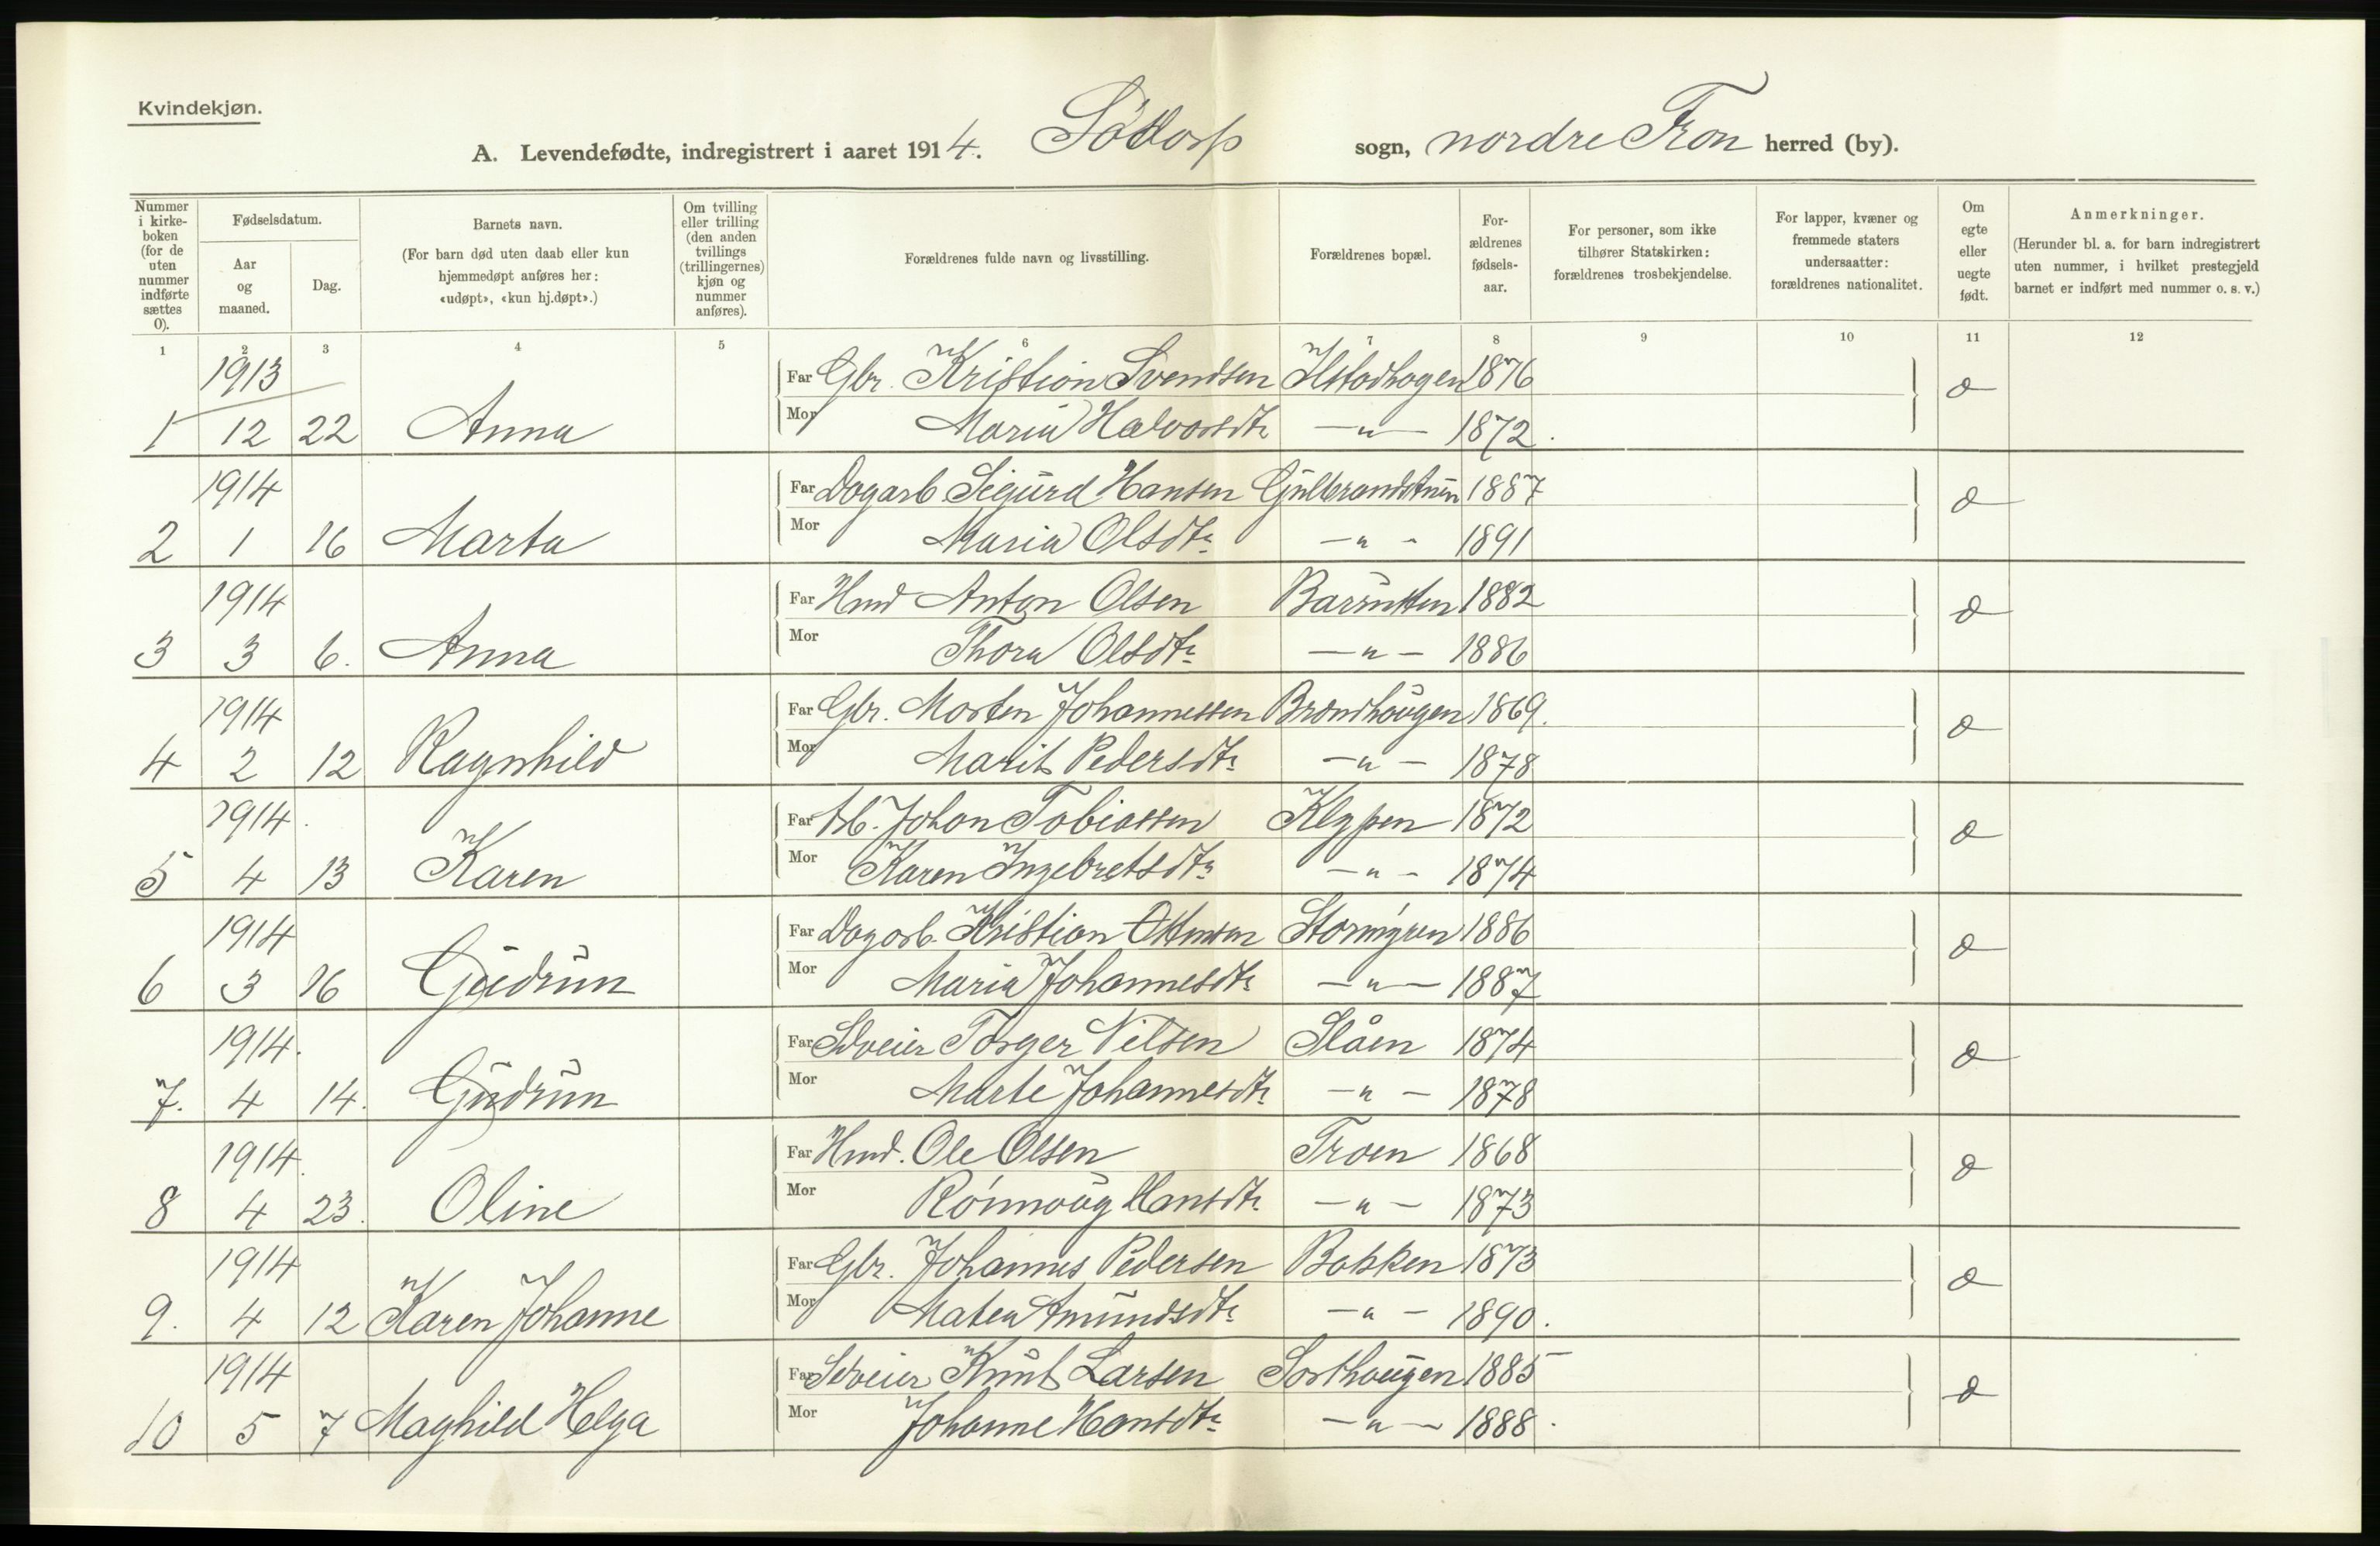 Kvindekjøn.
A. Levendefødte, indregistrert i aaret 1914. Södorp sogn, nordre Fron herred (by).
Nummer i kirke-boken (for de uten nummer indførte sættes 0).
Fødselsdatum.
Aar og maaned.
Dag.
Barnets navn.
(For barn død uten daab eller kun hjemmedøpt anføres her: «udøpt», «kun hj.døpt».)
Om tvilling eller trilling (den anden tvillings (trillingernes) kjøn og nummer anføres).
Forældrenes fulde navn og livsstilling.
Forældrenes bopæl.
For-ældrenes fødsels-aar.
For personer, som ikke tilhører Statskirken: forældrenes trosbekjendelse.
For lapper, kvæner og fremmede staters undersaatter: forældrenes nationalitet.
Om egte eller uegte født.
Anmerkninger.
(Herunder bl. a. for barn indregistrert uten nummer, i hvilket prestegjeld barnet er indført med nummer o. s. v.)
1 2 3 4 5 6 7 8 9 10 11 12
1913 Far Gbr. Kristian Svendsen Ilstadhagen 1876
1 12 22 Anna Mor Maria Halvorsdtr. —„— 1872.
1914 Far Dagarb. Sigurd Hansen Gulbrandstuen 1887
2 1 16 Marta Mor Maria Olsdtr. —„— 1891
1914 Far Hmd Anton Olsen 1882
3 3 6. Anna Mor Thora Olsdtr. —„— 1886
1914 Far Gbr. Morten Johannessen Brændhaugen 1869.
4 2 12 Ragnhild Mor Marit Pedersdtr. —„— 1878
1914. Far Arb. Johan Tobiassen Klypen 1872
5 4 13 Karen Mor Karen Ingebretsdtr. —„— 1874
1914 Far Dagarb. Kristian 1886
6 3 16 Gudrun Mor Maria Johannesdtr. —„— 1887
1914. Far Selveier Torger Nilsen Slåen 1874
7. 4 14. Gudrun Mor Marte Johannesdtr. —„— 1878
1914. Far Hmd. Ole Olsen Troen 1868
8 4 23. Oline Mor Rönnoug Hansdtr. —„— 1873
1914 Far Gbr. Johannes Pedersen Bakken 1873
9. 4 12 Karen Johanne Mor Matea Amundsdtr. —„— 1890.
1914 Far Selveier Knut Larsen Sorthaugen 1885
10 5 7 Maghild Helga Mor Johanne Hansdtr. —„— 1888.